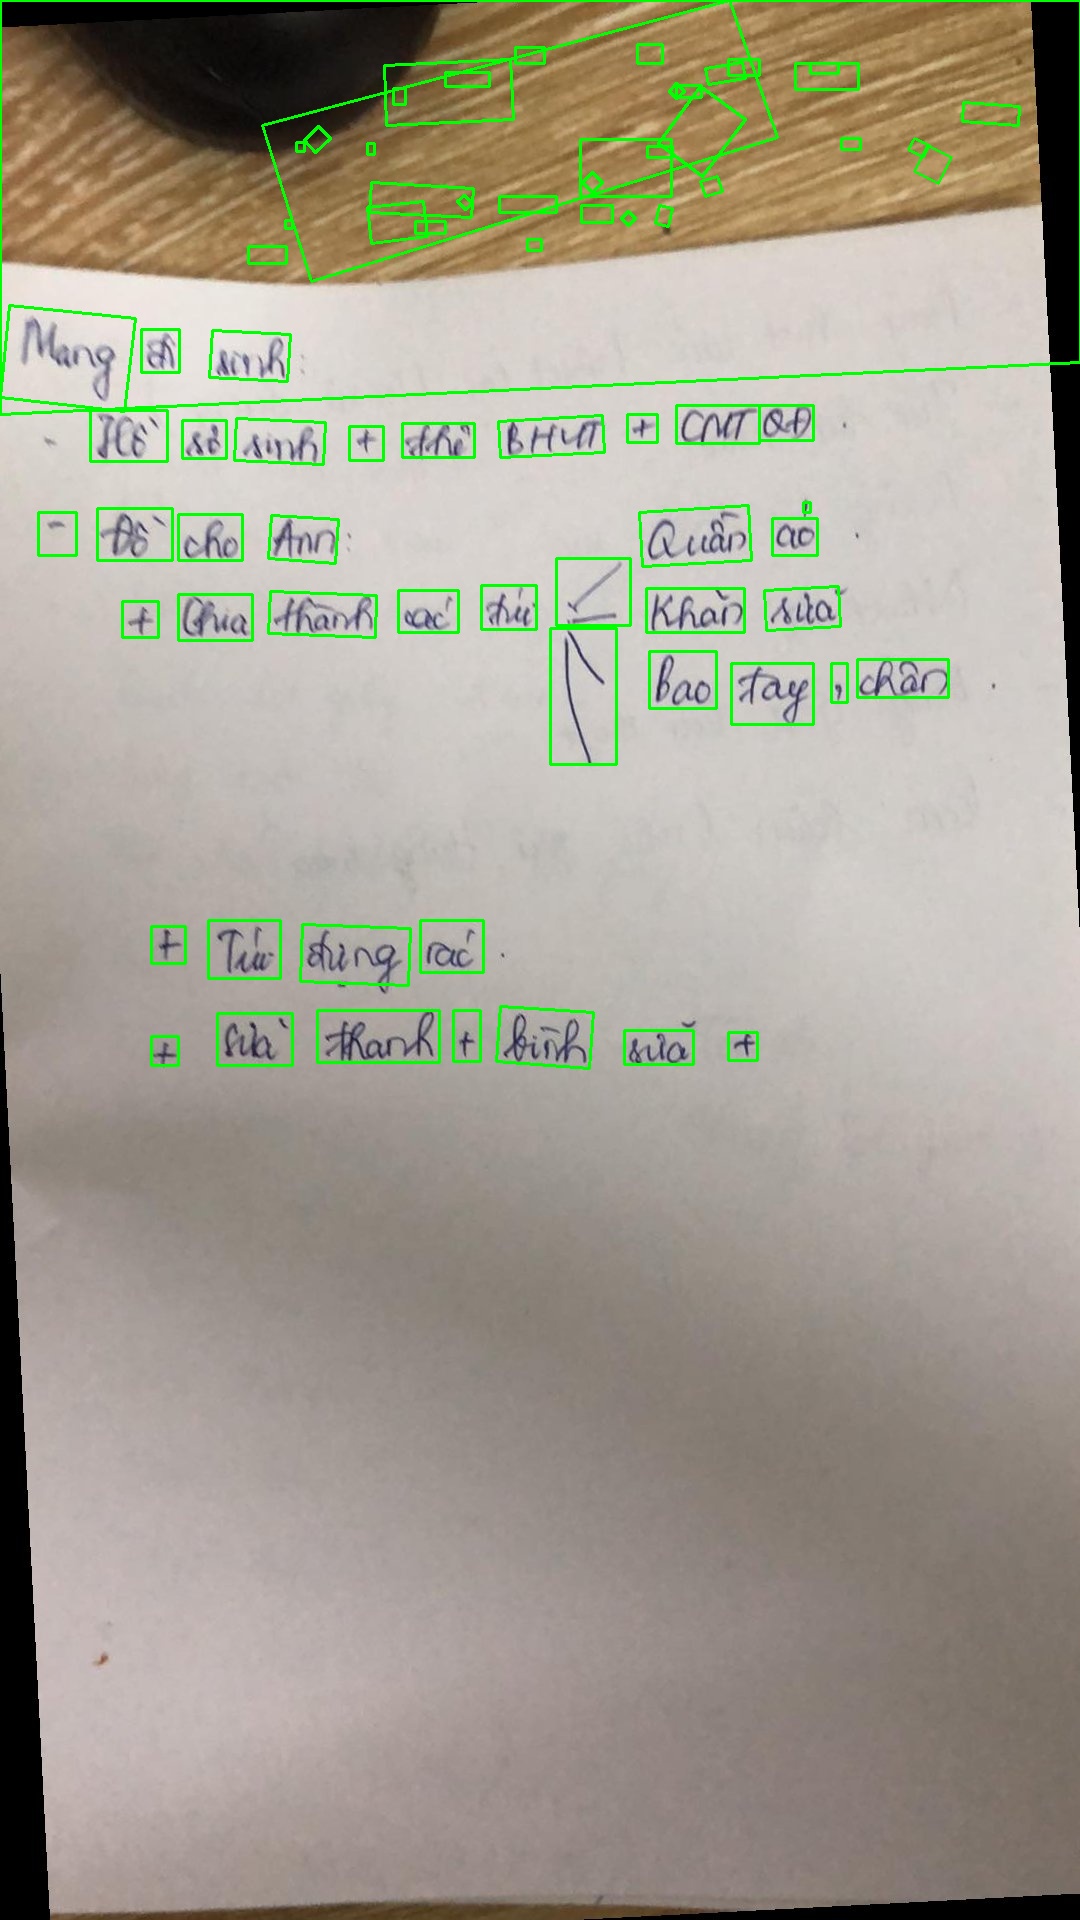 Mang đi sinh:
- Hồ sơ sinh + thẻ BHYT + CMTQĐ.
- Đồ cho Ann: Quần áo.
+ Chia thành các túi Khăn sữa
Bao tay, chân.
+ Túi đựng rác.
+ Sữa thanh + bình sữa +